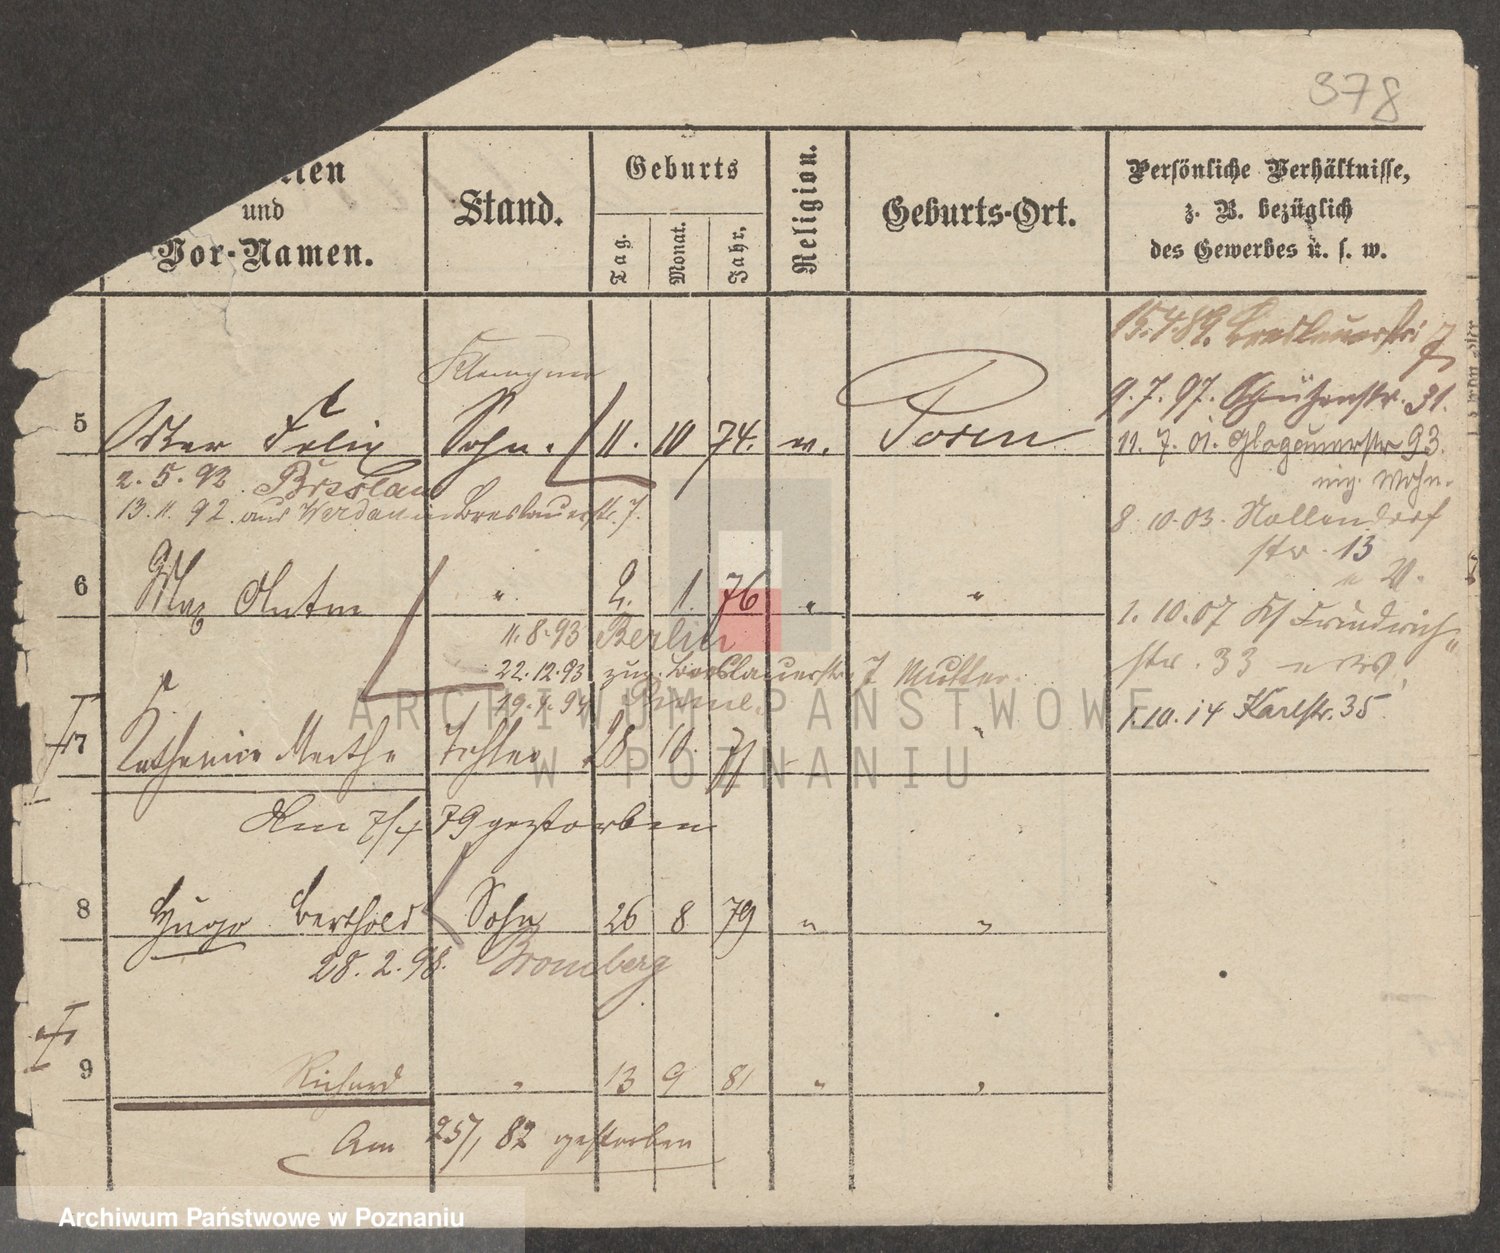 378
und
Vor-Namen.
Stand.
Geburts
Tag.
Monat.
Jahr.
Religion.
Geburts-Ort.
Persönliche Verhältnisse,
z. B. bezüglich
des Gewerbes u. s. w.
15.4.89. Breslauerstr. 7
Klempner
9.7.97. Schützenstr. 31.
5 Oskar Felix Sohn. 11. 10 74. ev. Posen
11. 7. 01. Glogauerstr 93.
2. 5. 92. Breslau
Wohn.
13. 11. 92. aus Werdau in Breslauerstr. 7.
8. 10. 03. Nollendorf
str. 13
6 Max Anton " 2. 1. 76 " "
11.8.93 Berlin
1. 10. 07 Friedrich
22.12.93 zur. Breslauerstr. 7 Mutter.
str. 33
19.4.94
1.10.14 Karlstr. 35
7 Katharine Martha Tochter 28 10. "
Am 7/4 79 gestorben
8 Hugo Berthold Sohn 26 8 79 " "
28. 2. 98. Bromberg
9 Richard " 13 9 81 " "
Am 25/1 82 gestorben
ARCHIWUM PAŃSTWOWE
W POZNANIU
Archiwum Państwowe w Poznaniu